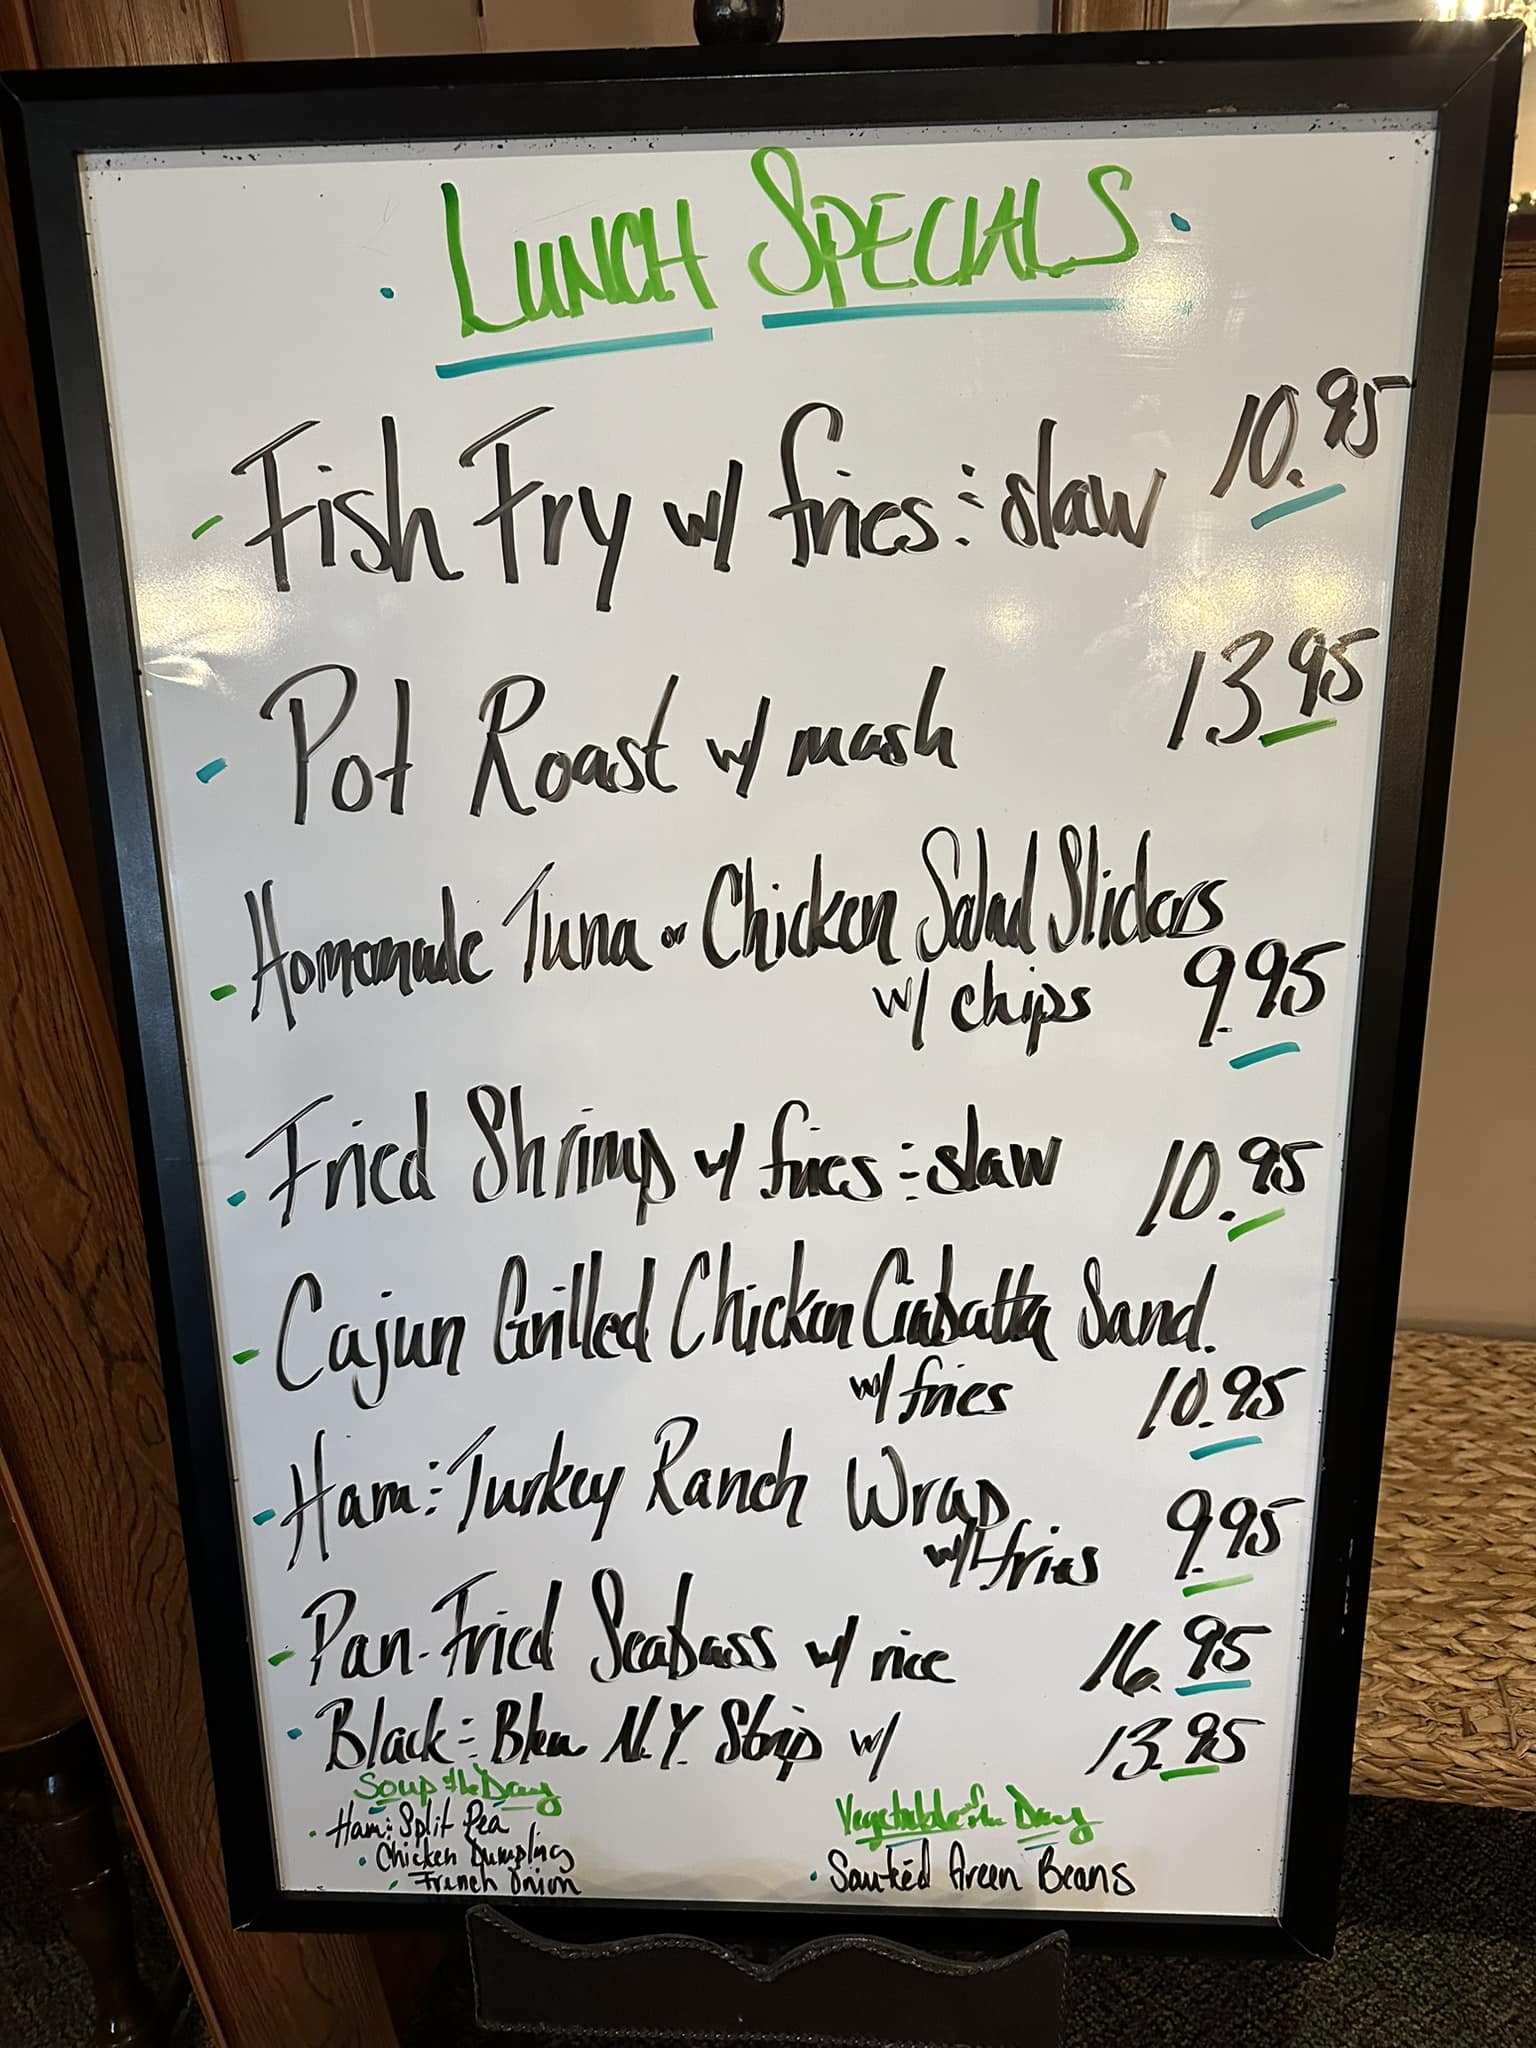 · LUNCH SPECIALS ·
- Fish Fry w/ fries & slaw 10.95
- Pot Roast w/ mash 13.95
- Homemade Tuna or Chicken Salad Sliders
w/ chips 9.95
- Fried Shrimp w/ fries & slaw 10.95
- Cajun Grilled Chicken Ciabatta Sand.
w/ fries 10.95
- Ham & Turkey Ranch Wrap
w/ fries 9.95
- Pan-Fried Seabass w/ rice 16.95
- Black & Bleu N.Y. Strip w/ 13.95
Soup of the Day
· Ham & Split Pea
· Chicken Dumpling
· French Onion
Vegetable of the Day
· Sautéed Green Beans